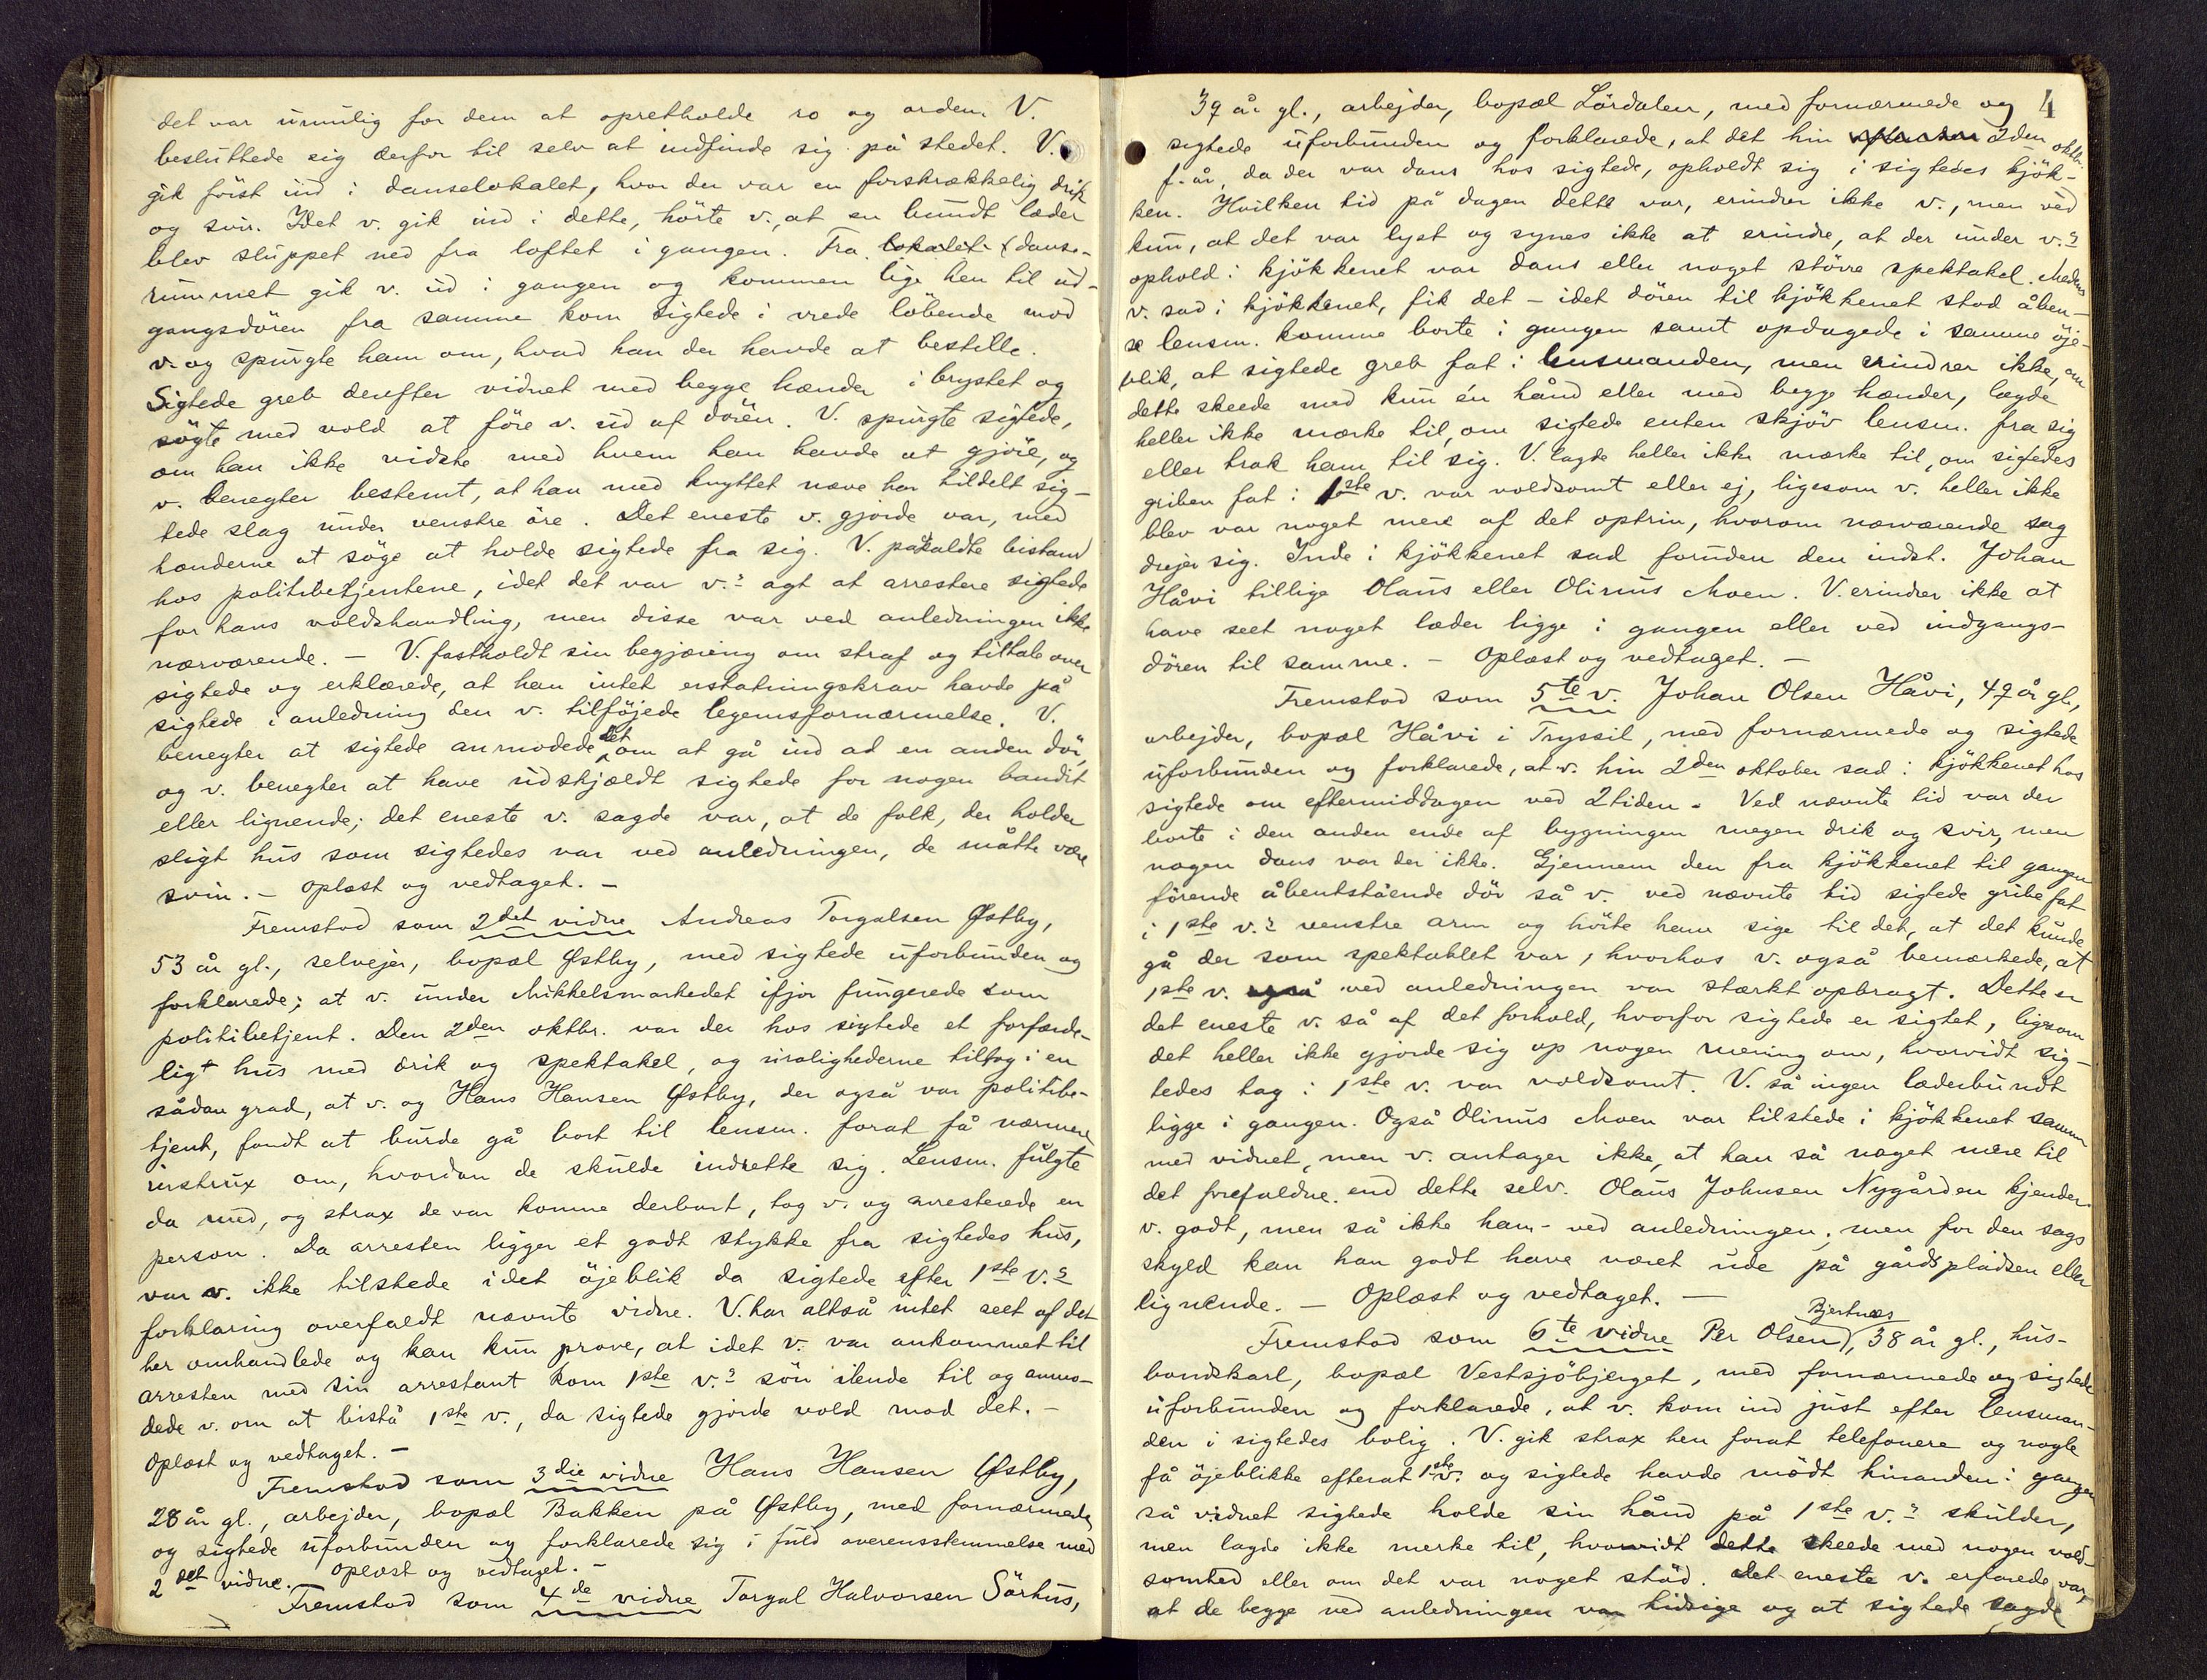 det var umulig for dem at opretholde ro og orden. V.
besluttede sig derfor til selv at indfinde sig på stedet. V.
gik först ind i danselokalet, hvor der var en forskrækkelig drik
og svir. Idet v. gik ind i dette, hörte v., at en bundt læder
blev sluppet ned fra loftet i gangen. Fra lokalet (danse-
rummet gik v. ud i gangen og kommen lige hen til ud-
gangsdören fra samme kom sigtede i vrede löbende mod
v. og spurgte ham om, hvad han der havde at bestille.
Sigtede greb derefter vidnet med begge hænder i brystet og
sögte med vold at före v. ud af dören. V. spurgte sigtede,
om han ikke vidste med hvem han havde at gjöre, og
v. benegter bestemt, at han med knyttet næve har tildelt sig-
tede slag under venstre öre. Det eneste v. gjorde var, med
hænderne at söge at holde sigtede fra sig. V. påkaldte bistand
hos politibetjentene, idet det var v.s agt at arrestere sigtede
for hans voldshandling, men disse var ved anledningen ikke
nærværende. – V. fastholdt sin begjæring om straf og tiltale over
sigtede og erklærede, at han intet erstatningskrav havde på
sigtede i anledning den v. tilföjede legemsfornærmelse. V.
benegter at sigtede anmodede det om at gå ind ad en anden dör,
og v. benegter at have udskjældt sigtede for nogen bandit
eller lignende; det eneste v. sagde var, at de folk, der holder
sligt hus som sigtedes var ved anledningen, de måtte være
svin. – Oplæst og vedtaget. –
Fremstod som 2det vidne Andreas Torgalsen Østby,
53 år gl., selvejer, bopæl Østby, med sigtede uforbunden og
forklarede; at v. under Mikkelsmarkedet ifjor fungerede som
politibetjent. Den 2den oktbr. var der hos sigtede et forfærde-
ligt hus med drik og spektakel, og urolighederne tiltog i en
sådan grad, at v. og Hans Hansen Østby, der også var politibe-
tjent, fandt at burde gå bort til lensm. forat få nærmere
instrux om, hvordan de skulde indrette sig. Lensm. fulgte
da med, og strax de var komne derbort, tog v. og arresterede en
person. Da arresten ligger et godt stykke fra sigtedes hus,
var v. ikke tilstede i det öjeblik da sigtede efter 1ste v.s
forklaring overfaldt nævnte vidne. V. har altså intet seet af det
her omhandlede og kan kun prove, at idet v. var ankommet til
arresten med sin arrestant kom 1ste v.s sön ilende til og anmo-
dede v. om at bistå 1ste v., da sigtede gjorde vold mod det. –
Oplæst og vedtaget. –
Fremstod som 3die vidne Hans Hansen Østby,
28 år gl., arbejder, bopæl Bakken på Østby, med fornærmede
og sigtede uforbunden og forklarede sig i fuld overensstemmelse med
2det vidne. Oplæst og vedtaget. –
Fremstod som 4de vidne Torgal Halvorsen Sörhus,
4
39 år gl., arbejder, bopæl Lördalen, med fornærmede og
sigtede uforbunden og forklarede, at det hin 2den oktbr.
f. år, da der var dans hos sigtede, opholdt sig i sigtedes kjök-
ken. Hvilken tid på dagen dette var, erindrer ikke v., men ved
kun, at det var lyst og synes ikke at erindre, at der under v.s
ophold i kjökkenet var dans eller noget större spektakel. Medens
v. sad i kjökkenet, fik det – idet dören til kjökkenet stod åben –
se lensm. komme borte i gangen samt opdagede i samme öje-
blik, at sigtede greb fat i lensmanden, men erindrer ikke, om
dette skeede med kun én hånd eller med begge hænder, lagde
heller ikke mærke til, om sigtede enten skjöv lensm. fra sig
eller trak ham til sig. V. lagde heller ikke mærke til, om sigtedes
griben fat i 1ste v. var voldsomt eller ej, ligesom v. heller ikke
blev var noget mere af det optrin, hvorom nærværende sag
drejer sig. Inde i kjökkenet sad foruden den indst. Johan
Håvi tillige Olaus eller Olinus Moen. V. erindrer ikke at
have seet noget læder ligge i gangen eller ved indgangs-
dören til samme. – Oplæst og vedtaget. –
Fremstod som 5te v. Johan Olsen Håvi, 47 år gl.,
arbejder, bopæl Håvi i Tryssil, med fornærmede og sigtede
uforbunden og forklarede, at v. hin 2den oktober sad i kjökkenet hos
sigtede om eftermiddagen ved 2 tiden. Ved nævnte tid var der
borte i den anden ende af bygningen megen drik og svir, men
nogen dans var der ikke. Gjennem den fra kjökkenet til gangen
förende åbentstående dör så v. ved nævnte tid sigtede gribe fat
i 1ste v.s venstre arm og hörte ham sige til det, at det kunde
gå der som spektaklet var, hvorhos v. også bemærkede, at
1ste v. også ved anledningen var stærkt opbragt. Dette er
det eneste v. så af det forhold, hvorfor sigtede er sigtet, ligesom
det heller ikke gjorde sig op nogen mening om, hvorvidt sig-
tedes tag i 1ste v. var voldsomt. V. så ingen læderbundt
ligge i gangen. Også Olinus Moen var tilstede i kjökkenet sammen
med vidnet, men v. antager ikke, at han så noget mere til
det forefaldne end dette selv. Olaus Johnsen Nygården kjender
v. godt, men så ikke ham ved anledningen; men for den sags
skyld kan han godt have været ude på gårdspladsen eller
lignende. – Oplæst og vedtaget. –
Fremstod som 6te vidne Per Olsen Bjertnæs, 38 år gl., hus-
bondskarl, bopæl Vestsjöbjerget, med fornærmede og sigtede
uforbunden og forklarede, at v. kom ind just efter lensman-
den i sigtedes bolig. V. gik strax hen forat telefonere og nogle
få öjeblikke efterat 1ste v. og sigtede havde mödt hinanden i gangen
så vidnet sigtede holde sin hånd på 1ste v.s skulder,
men lagde ikke merke til, hvorvidt dette skeede med nogen vold-
somhed eller om det var noget stöd. Det eneste v. erfarede var,
at de begge ved anledningen var hidsige og at sigtede sagde